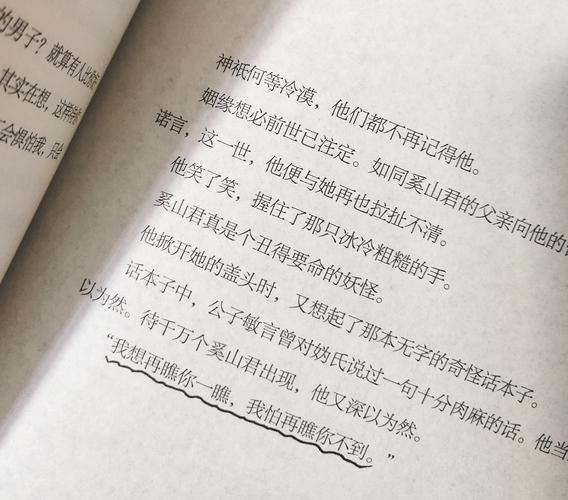 的男子？就算有人
其实在想，这
会惧怕我，只
神祇何等冷漠，他们都不再记得他。
姻缘想必前世已注定。如同奚山君的父亲向他的
诺言，这一世，他便与她再也拉扯不清。
他笑了笑，握住了那只冰冷粗糙的手。
奚山君真是个丑得要命的妖怪。
他掀开她的盖头时，又想起了那本无字的奇怪话本子。
话本子中，公子敏言曾对妫氏说过一句十分肉麻的话。他当
以为然。待千万个奚山君出现，他又深以为然。
“我想再瞧你一瞧，我怕再瞧你不到。”